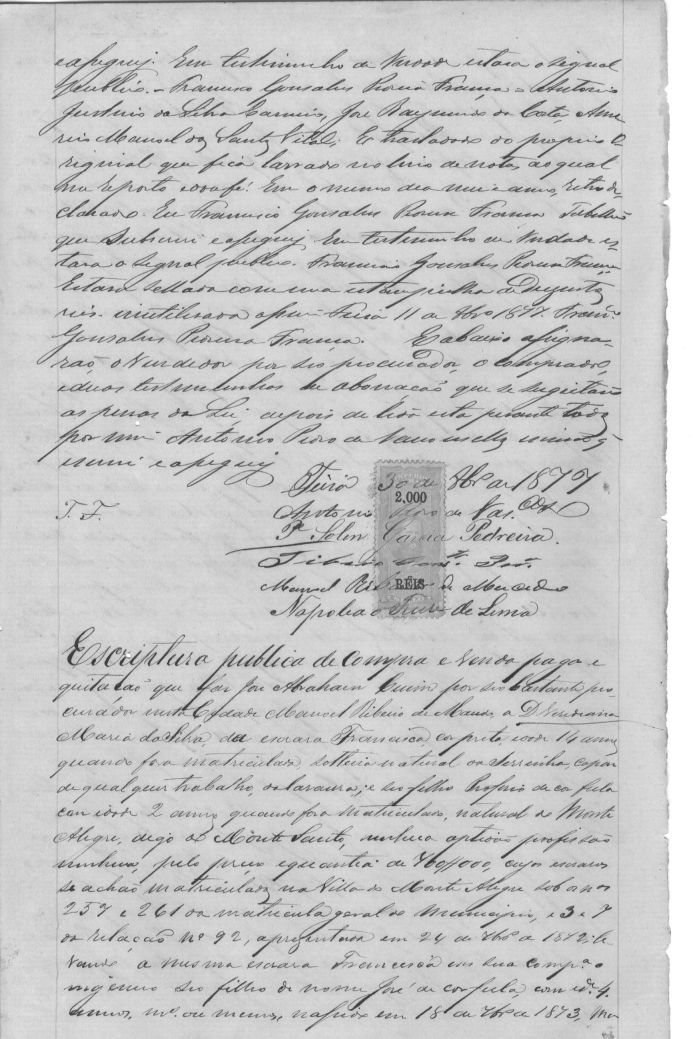 e assignei. Em testimunho de Verdade estava o signal
publico. - Francisco Gonsalves Pedreira França = Antonio
Justino da Silva Carneiro, José Raymundo da Costa Ame
Manoel dos Santos Vital. E trasladada do proprio O
riginal que fica lavrado no livro de notas ao qual
me reporto e dou fé. Em o mesmo dia mez e anno, retro de
clarado. Eu Francisco Gonsalves Pedreira França Tabellião
que subscrevi e assignei Em testimunho de Verdade es
tava o signal publico. Francisco Gonsalves Pedreira França
Estava sellada com uma estampilha de duzentos
reis inutilisada Feira 11 de 8bro 1877.
Gonsalves Pedreira França. E abaixo assigna
rão, o Vendedor por seo procurador, o comprador,
e duas testimunhas de abonação que se sugeitão
as penas da Lei depois de lida esta perante todos
por mim Antonio Pedro de Vasconcellos
e assignei
Feira 30 de 8bro de 1877
2,000
T. F.
Antonio Pedro de Vas.cellos
P. Solon Garcia Pedreira.
Manoel Rib de Macedo
RÉIS
Napoleão de Lima
Escriptura publica de Compra e Venda paga e
quitação que faz José Abraham por seo bastante pro
curador nesta Cidade Manoel Ribeiro de Macedo, a D.
Maria da Silva, da escrava Francisca cor preta, idade 14 annos
quando fora matriculada, solteira natural da Serrinha, capaz
de qualquer trabalho, da lavoura; e seo filho de cor fula
com idade 2 annos, quando fora matriculado, natural de Monte
Alegre, digo de Monte Santo, nenhuma aptidão profissão
nenhuma, pelo preço e quantia de cujos escravos
se achão matriculados na Villa do Monte Alegre sob os nos
257 e 261 da matricula geral do Municipio, e 3 e 7
da relação nº 92, aprezentada em 24 de 7bro de 1872: e
Vende a mesma escrava Francisca em sua comp.a o
ingenuo seo filho de nome José de cor fula, com id.e 4
annos, m.s ou menos, nascido em 18 de 7bro de 1873,